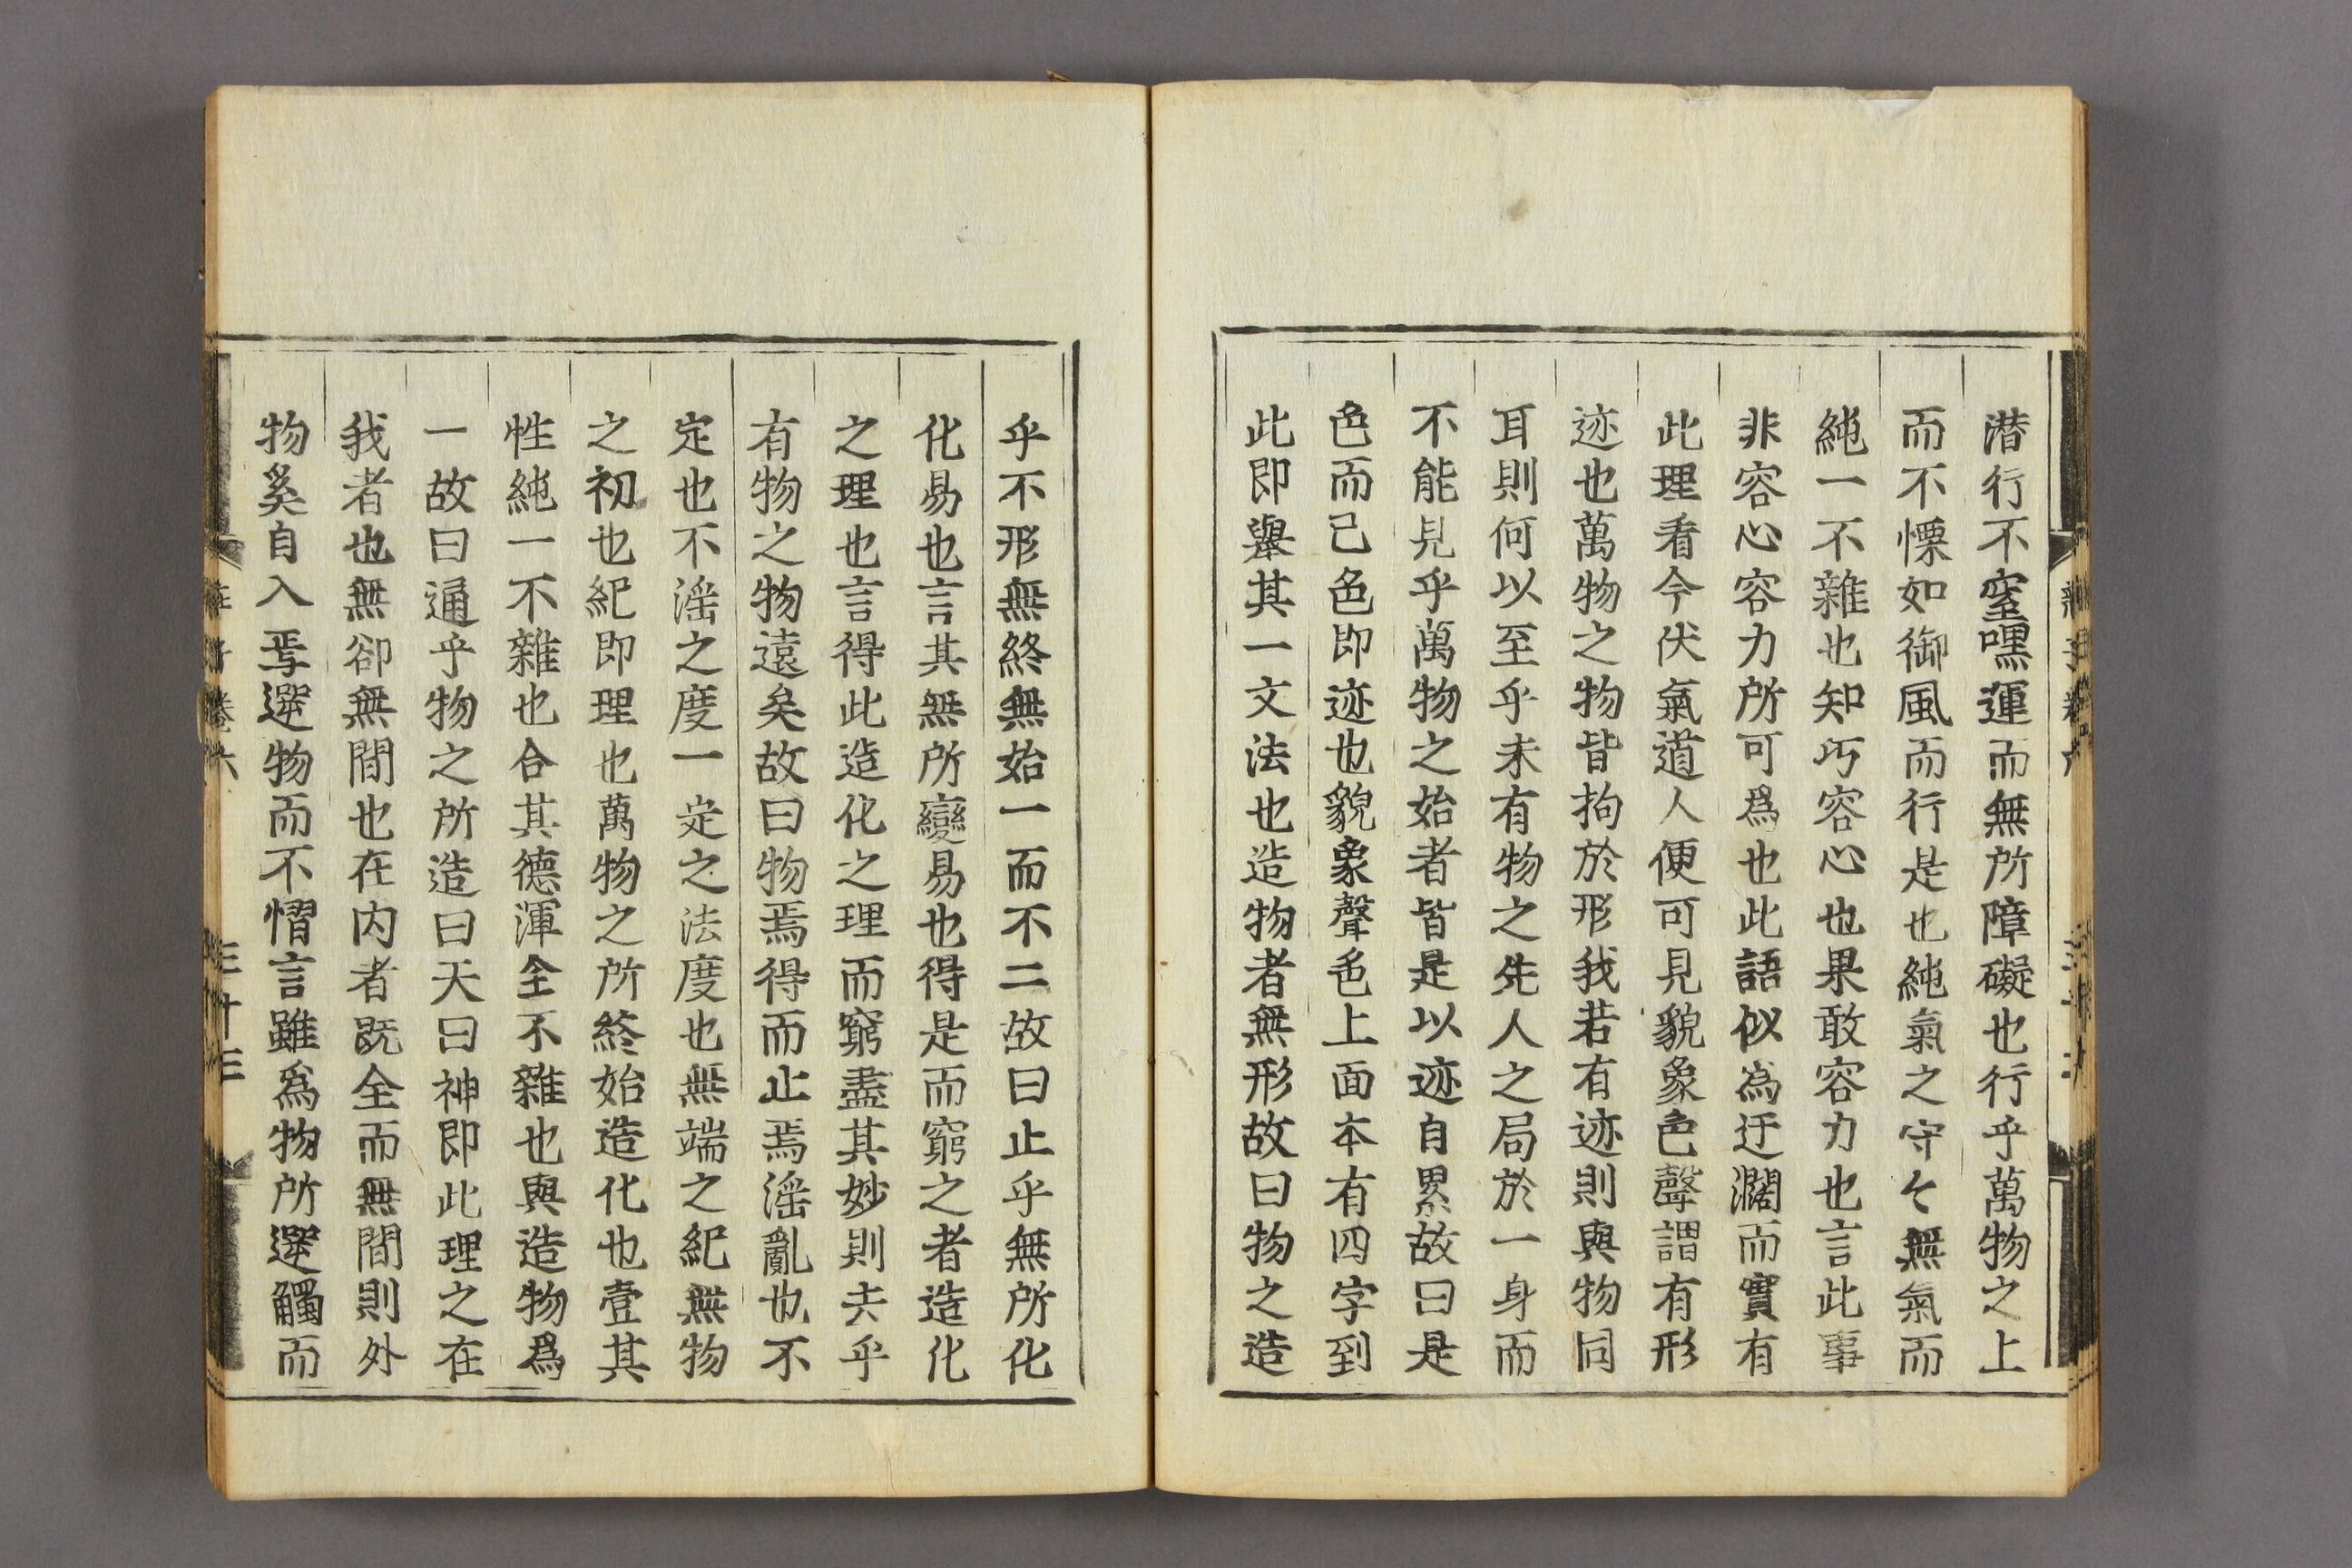 潜行不窒嘿運而無所障礙也行乎萬物之上
而不慄如御風而行是也純氣之守々無氣而
純一不雜也知巧容心也果敢容力也言此事
非容心容力所可爲也此語似為迂濶而實有
此理看今伏氣道人便可見貌象色聲謂有形
迹也萬物之物皆拘於形我若有迹則與物同
耳則何以至乎未有物之先人之局於一身而
不能見乎萬物之始者皆是以迹自累故曰是
色而已色即迹也貌象聲色上面本有四字到
此即舉其一文法也造物者無形故曰物之造
乎不形無終無始一而不二故曰止乎無所化
化易也言其無所變易也得是而窮之者造化
之理也言得此造化之理而窮盡其妙則去乎
有物之物遠矣故曰物焉得而止焉滛亂也不
定也不滛之度一定之法度也無端之紀無物
之初也紀即理也萬物之所終始造化也壹其
性純一不雜也合其德渾全不雜也與造物爲
一故曰通乎物之所造曰天曰神即此理之在
我者也無卻無間也在内者既全而無間則外
物奚自入焉遻物而不慴言雖爲物所遻觸而
莊子卷六
三十三